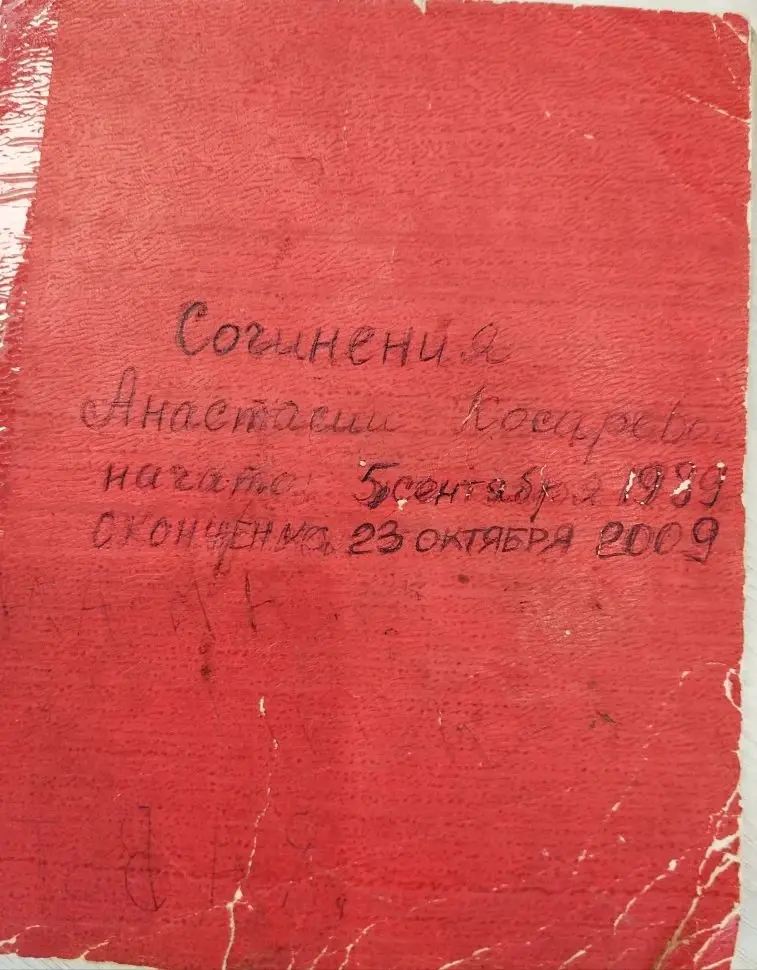 Сочинения
Анастасии Косаревой
начато 5 сентября 1999
ОКОНЧЕНА 23 ОКТЯБРЯ 2009